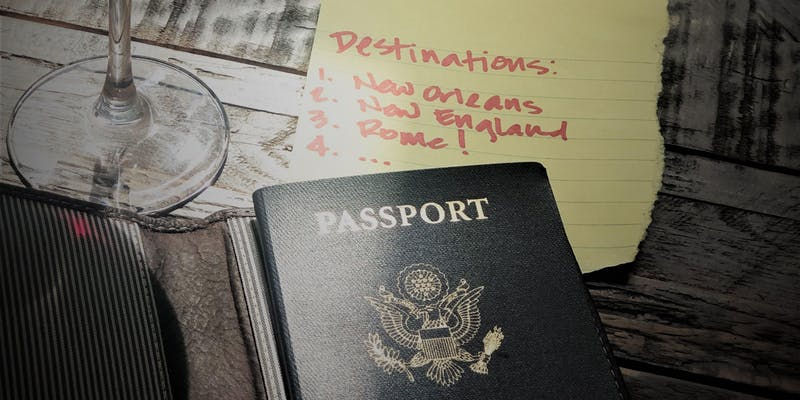 Destinations:
1. New Orleans
2. New England
3. Rome!
4. ...
PASSPORT